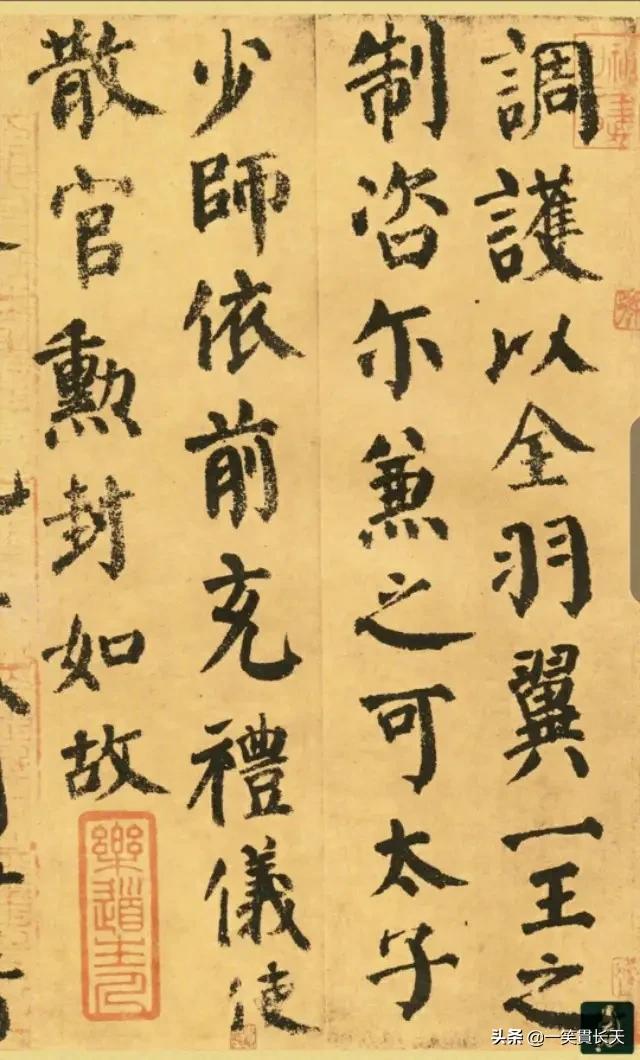 調護以全羽翼一王之
制咨尔兼之可太子
少師依前充禮儀使
散官勲封如故
樂道主人
头条 @一笑貫长天